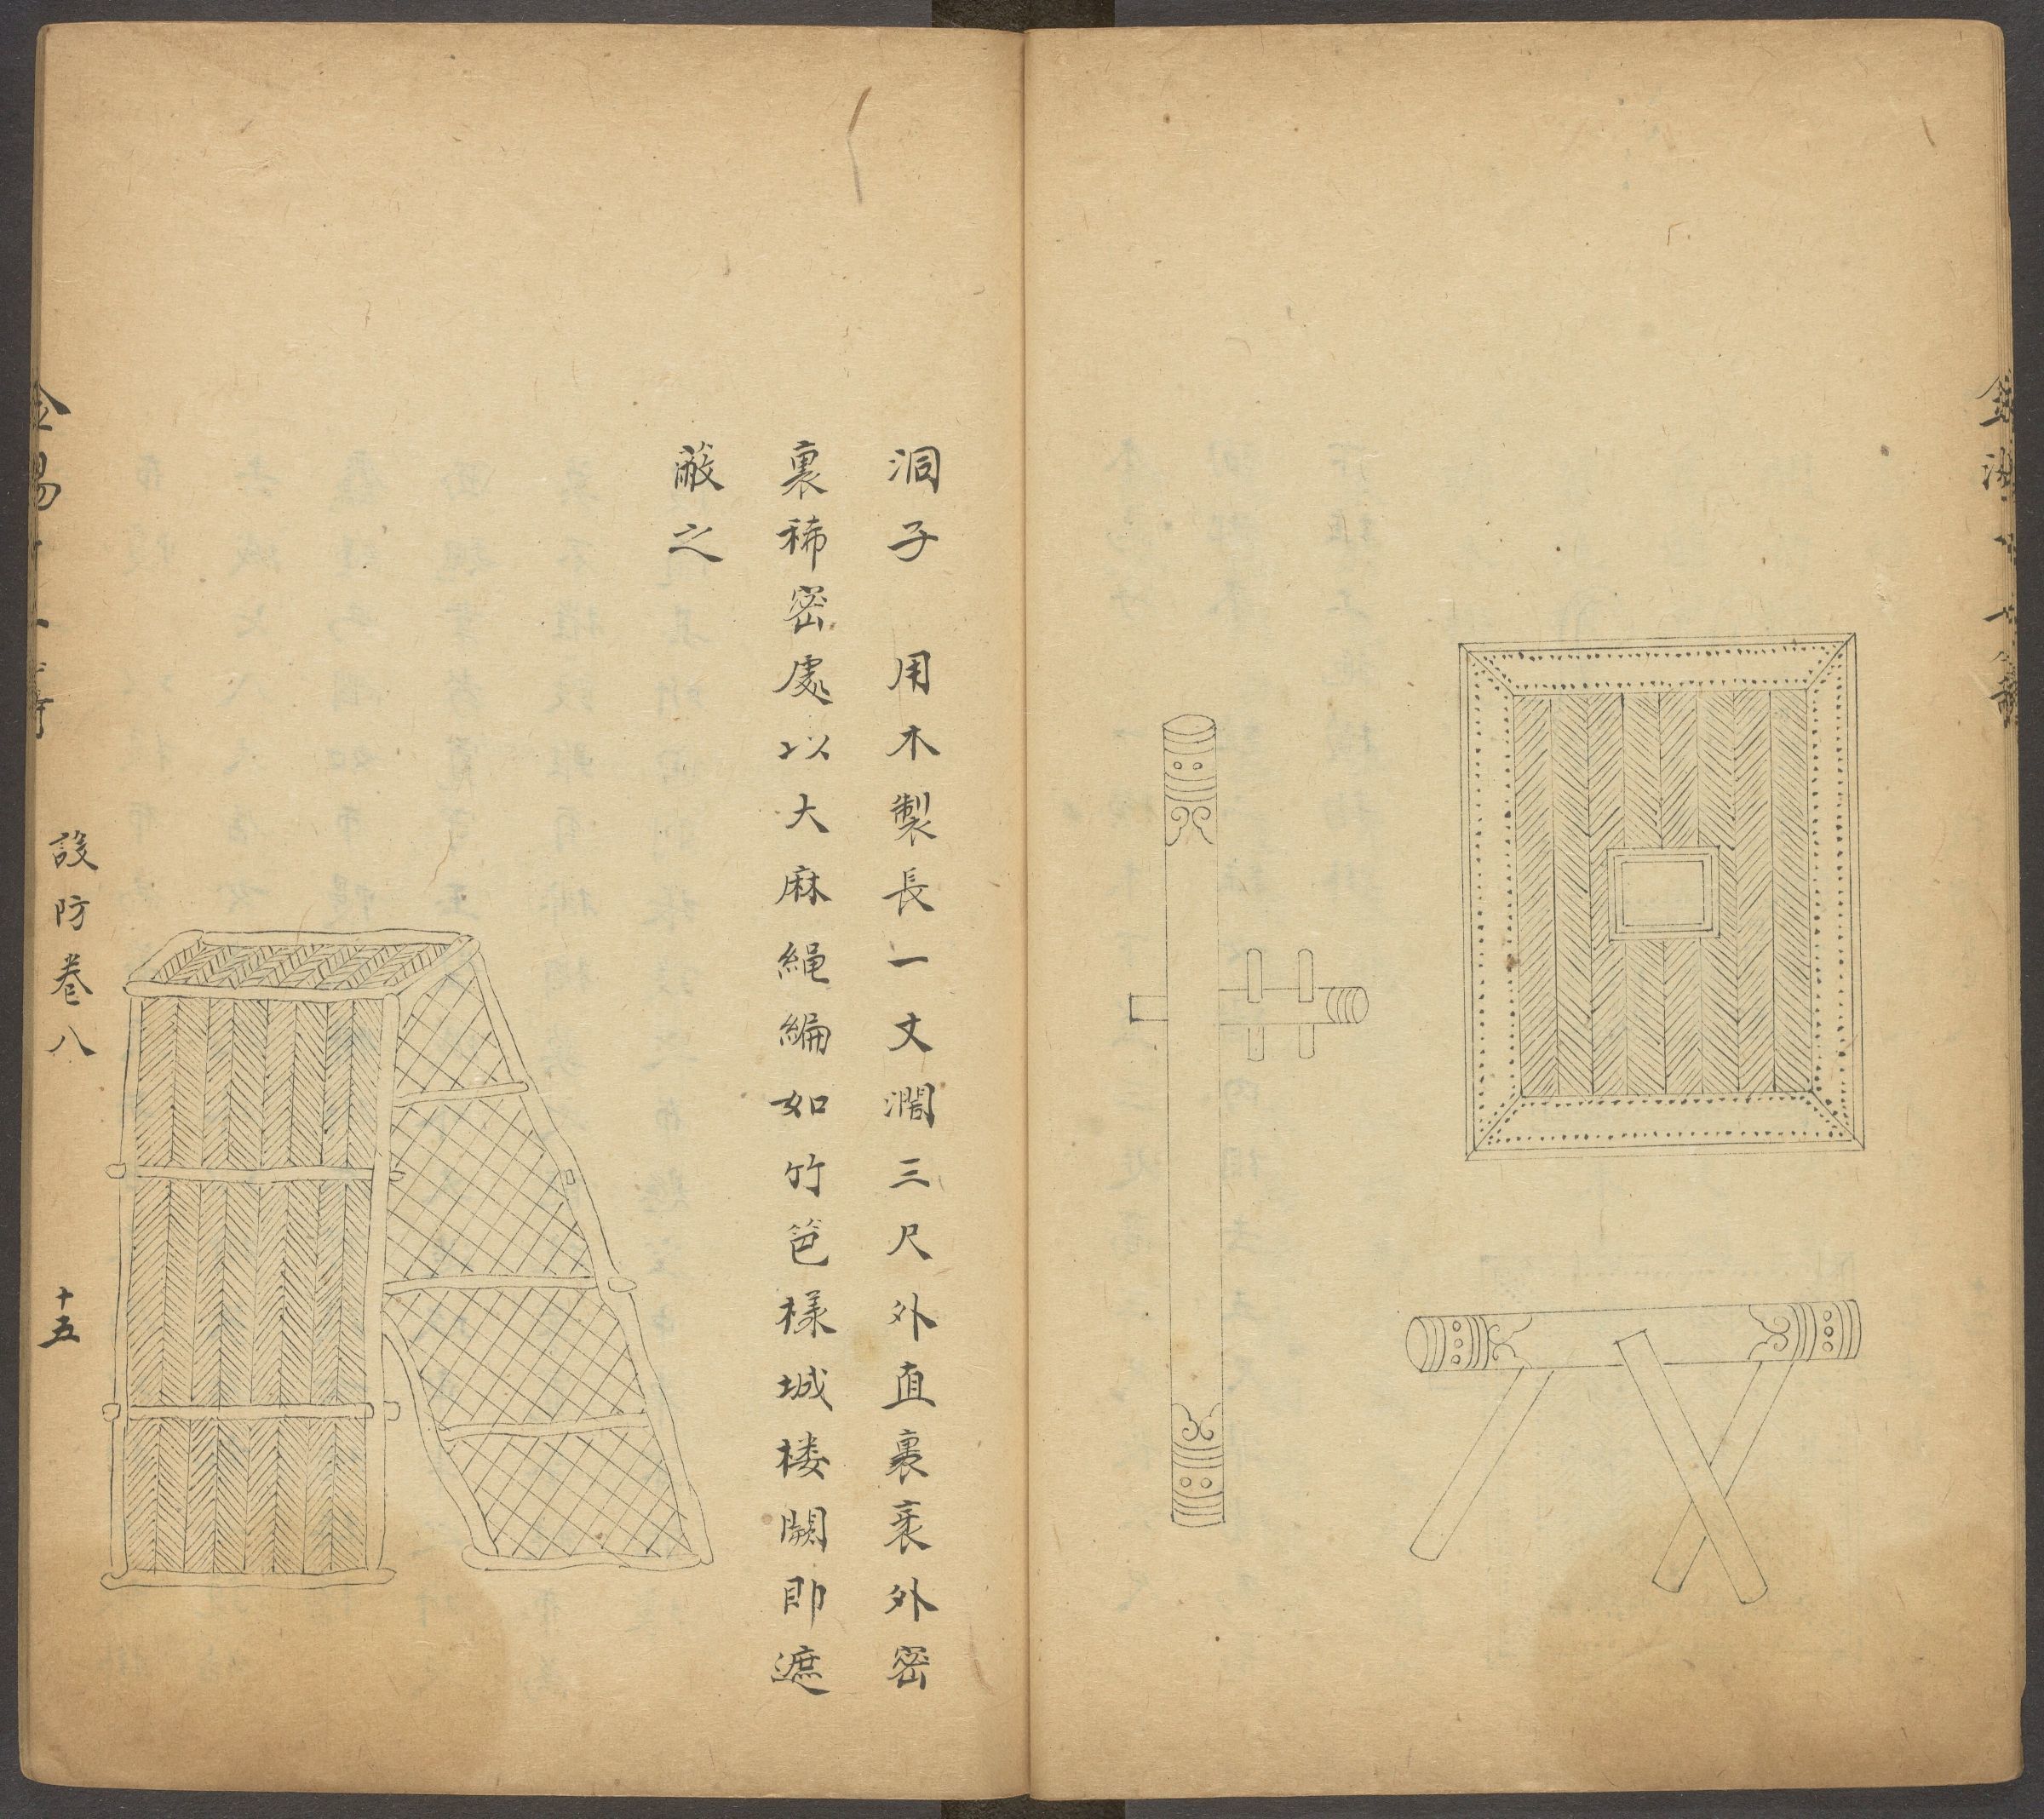 洞子　用木製長一丈濶三尺外直裏衺外密
裏稀密處以大麻繩編如竹笆様城楼闕即遮
蔽之
設防卷八
十五